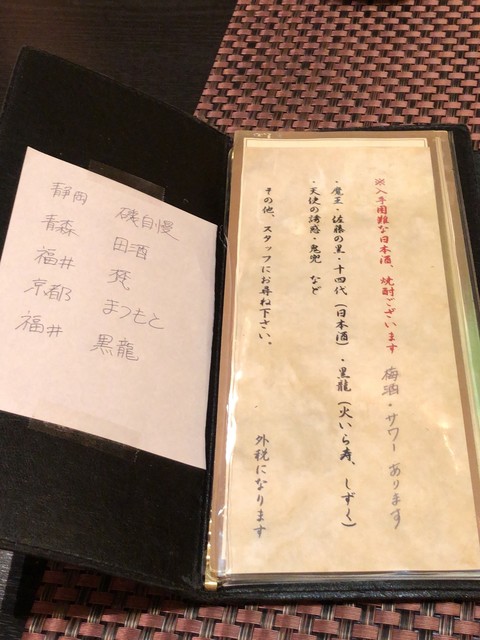 静岡 磯自慢
青森 田酒
福井 梵
京都 まつもと
福井 黒龍
※入手困難な日本酒、焼酎ございます 梅酒・サワー あります
・魔王・佐藤の黒・十四代(日本酒)・黒龍(火いら寿、しずく)
・天使の誘惑・鬼兜 など
その他、スタッフにお尋ね下さい。 外税になります